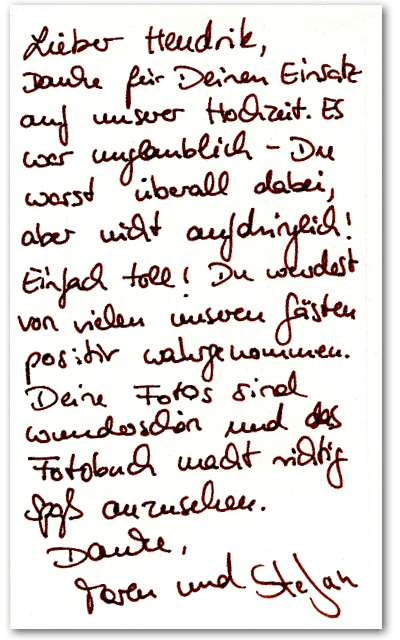 Lieber Hendrik,
Danke für Deinen Einsatz
auf unserer Hochzeit. Es
war unglaublich – Du
warst überall dabei,
aber nicht aufdringlich!
Einfach toll! Du wurdest
von vielen unseren Gästen
positiv wahrgenommen.
Deine Fotos sind
wunderschön und das
Fotobuch macht richtig
Spaß anzusehen.
Danke,
Maren und Stefan